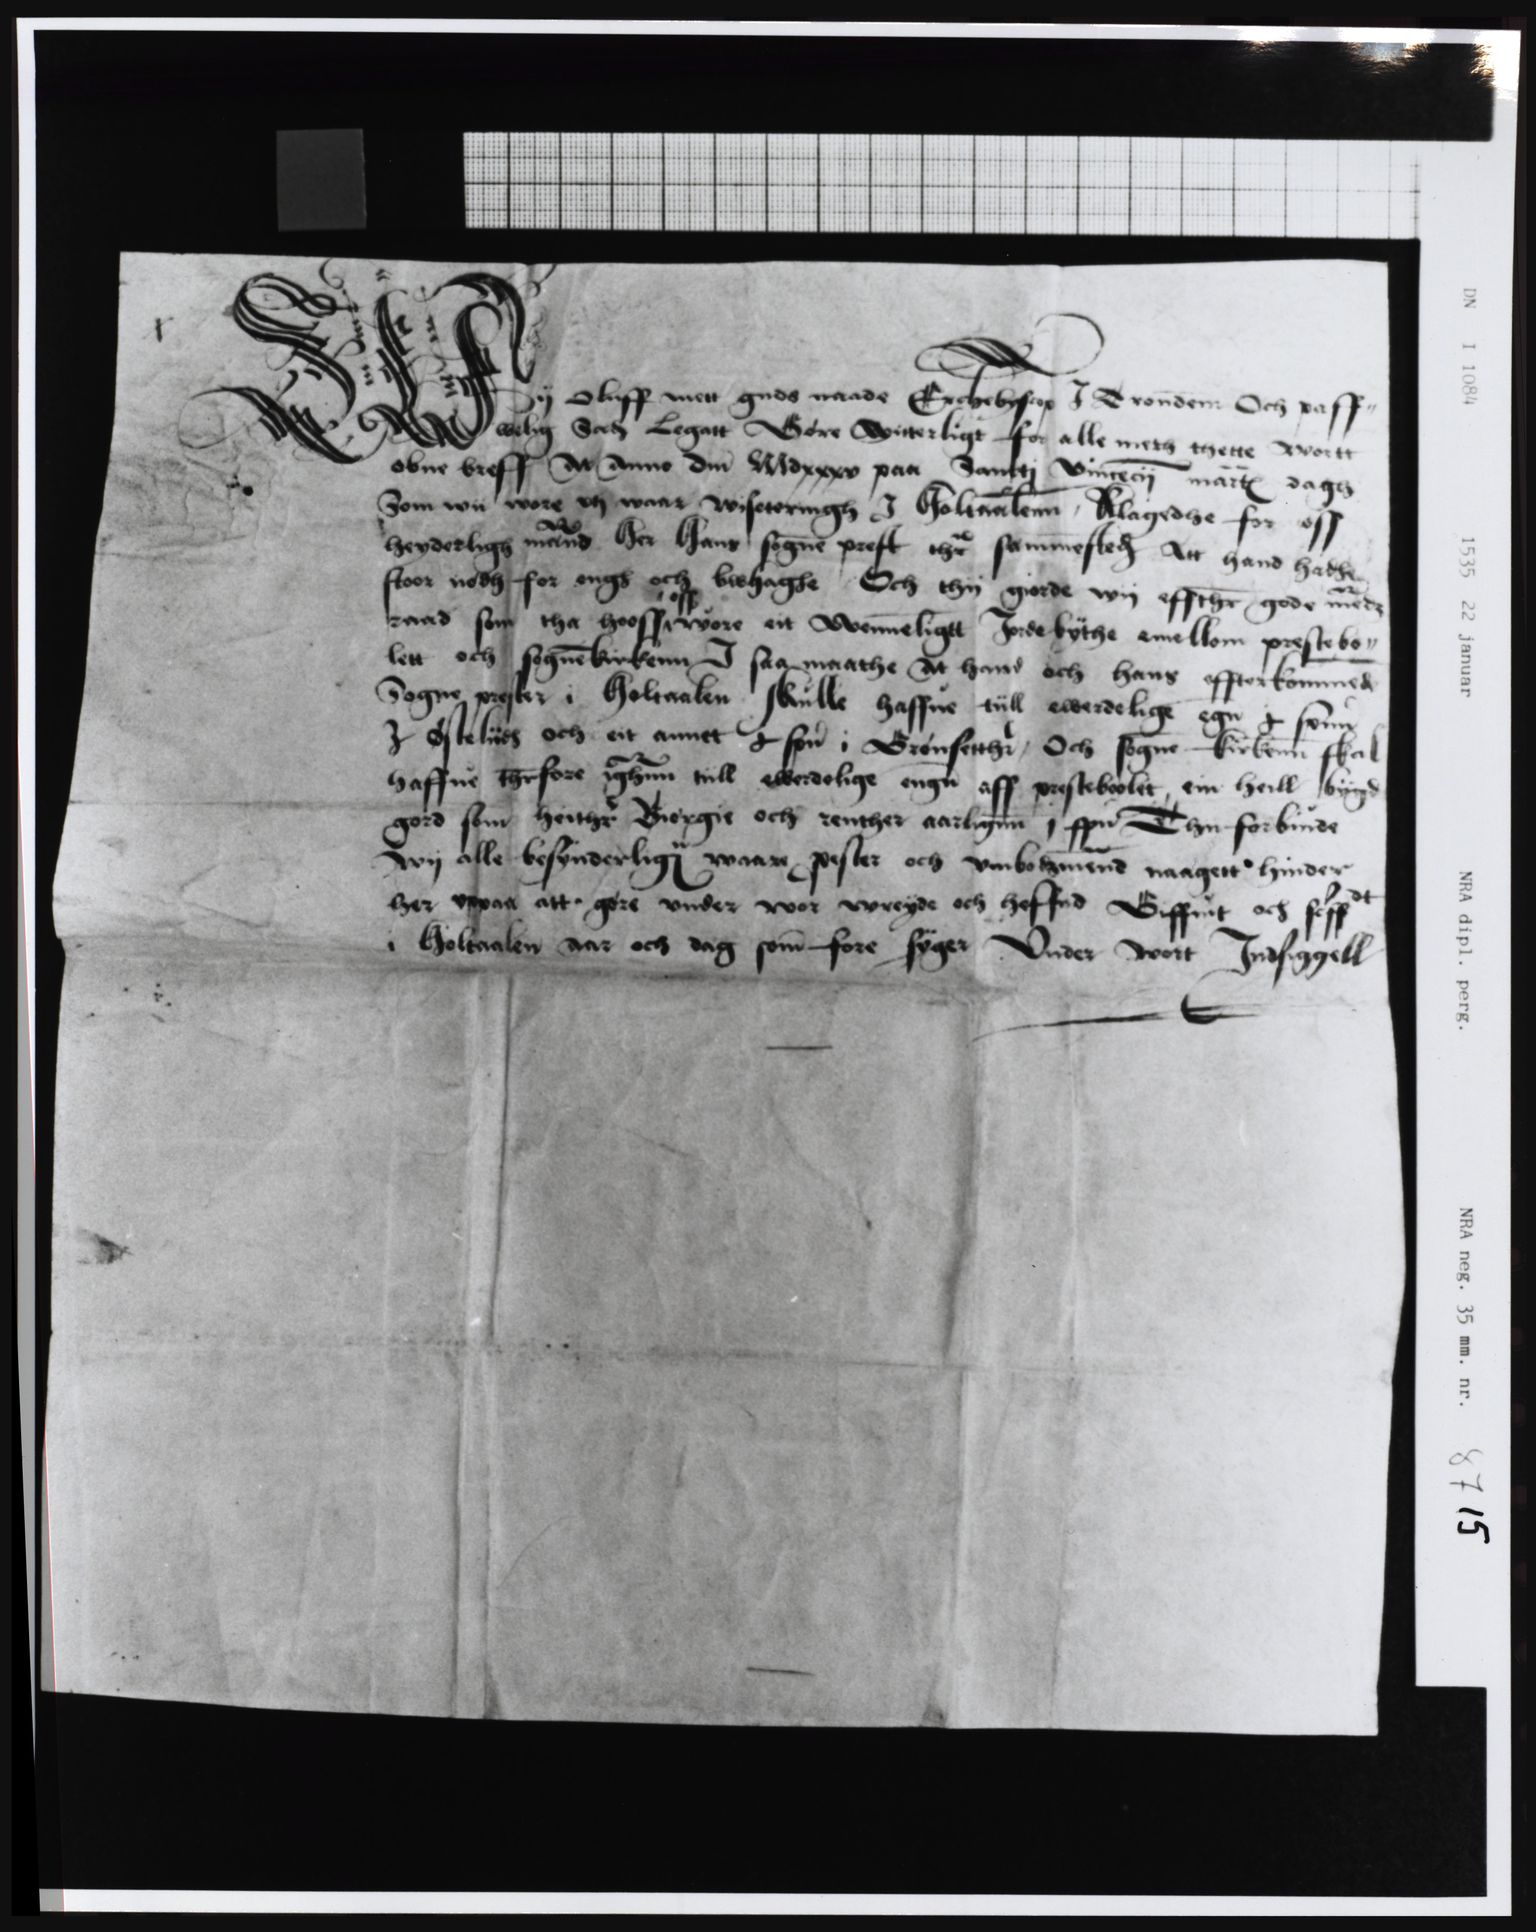 Wij Oluff mett guds naade Erchebiscop J Trondem Och paff„
welig Sedz Legatt Gøre Witterligt for alle meth thette wortt
obne breff At Anno Dni Mdxxxv paa Sancti Vincecii martz dagh
Som wii wore vti waar wisetteringh J Holtaalenn, Klagedhe for oss
heyderligh mand Her Hans sogne prest ther sammestedz Att hand hadhe
stoor nødh for engh och bwhaghe Och thij giorde wij effther gode mendz
raad som tha hooss oss wore eit Wenneligtt Jordebythe emellom prestebo„
lett och sognekirkenn J saa maathe At hand och hans effterkommende
Sogne prester i Holtaalen skulle haffue till ewerdelige egn spnn
J østeliidh och eit annet spn i Grønsetthr, Och sogne kirkenn skal
haffue therfore ighenn till ewerdelige engn aff prestebolet ein heill bygd
gord som heithr Biørgie och renther aarligenn j spn Thy forbiude
Wij alle besynderligh waare prester och vmbotzmend naagett hinder
her vppaa att gøre vnder wor wreyde och heffnd Giffuit och screffuidt
i Holtaalen aar och dag som fore syger Vnder wort Jndsiggell
DN I 1084
1535 22 januar
NRA dipl. perg.
NRA neg. 35 mm. nr.
8715